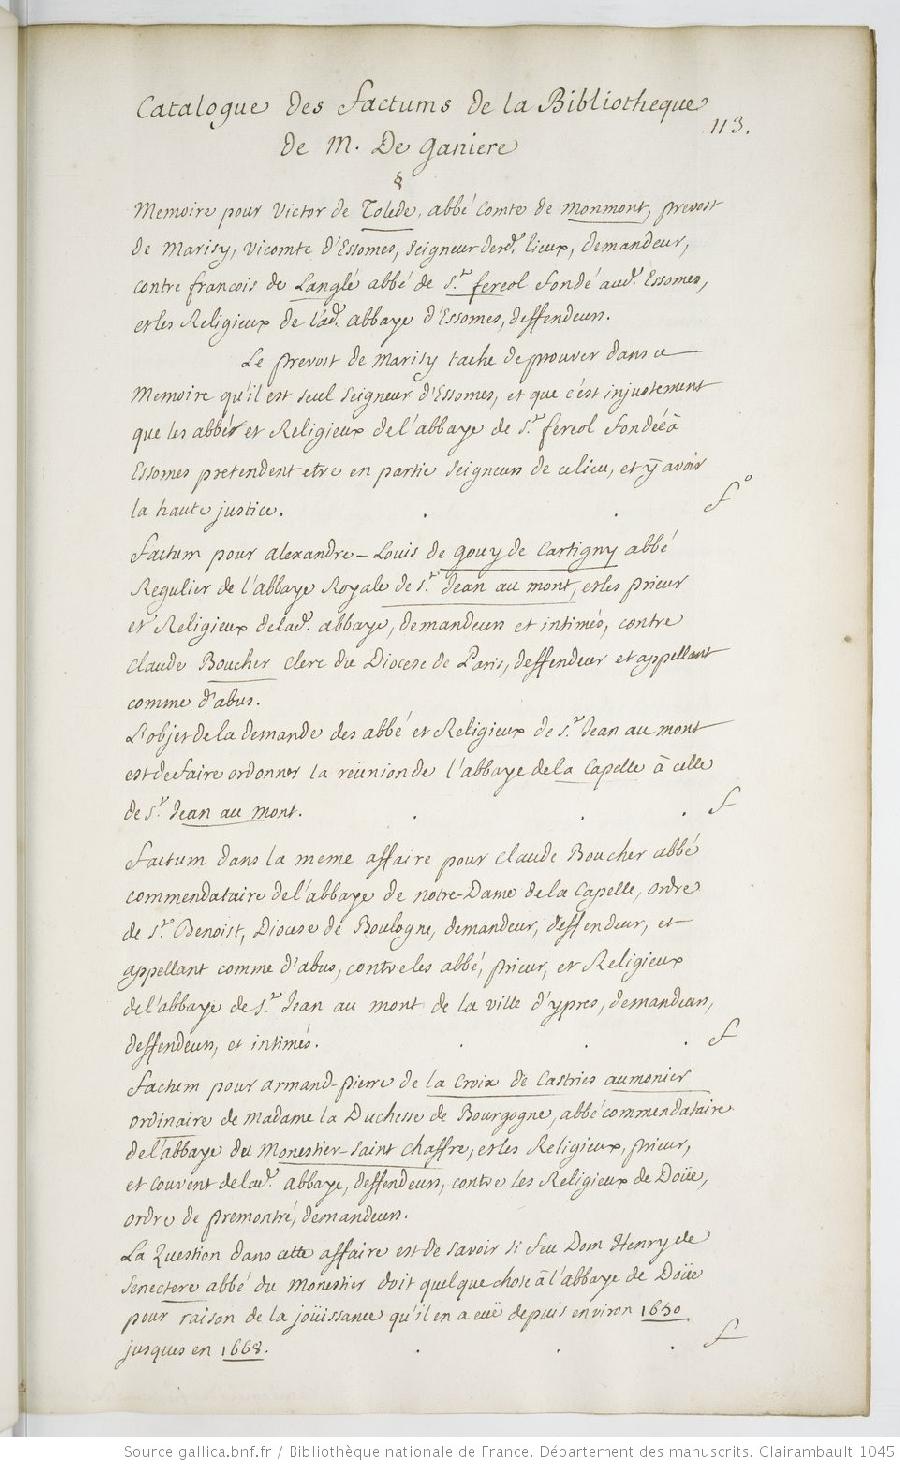 Catalogue des factums de la Bibliotheque
113.
de M. De Ganiere
§
Memoire pour Victor de Tolede, abbé Comte de Monmont, prevost
de Marisy, Vicomte d'Essomes, Seigneur desd. lieux, demandeur,
contre francois de Langlé abbé de St. fereol fondé aud. Essomes,
et les Religieux de lad. abbaye d'Essomes, deffendeurs.
Le prevost de Marisy tache de prouver dans ce
Memoire qu'il est seul Seigneur d'Essomes, et que c'est injustement
que les abbés et Religieux de l'abbaye de St. fereol fondée à
Essomes pretendent etre en partie seigneurs de ce lieu, et y avoir
la haute justice.
f°
factum pour alexandre-Louis de gouy de Cartigny abbé
Regulier de l'abbaye Royale de St. Jean au mont, et les prieur
et Religieux de lad. abbaye, demandeurs et intimés, contre
Claude Boucher clerc du Diocese de Paris, deffendeur et appellant
comme d'abus.
L'objet de la demande des abbé et Religieux de St. Jean au mont
est de faire ordonner la reunion de l'abbaye de la Capelle à celle
de St. Jean au mont.
f
factum dans la meme affaire pour Claude Boucher abbé
commendataire de l'abbaye de notre-Dame de la Capelle, ordre
de St. Benoist, Diocese de Boulogne, demandeur, deffendeur, et
appellant comme d'abus, contre les abbé, prieur, et Religieux
de l'abbaye de St. Jean au mont de la ville d'ypres, demandeurs,
deffendeurs, et intimés.
f
factum pour armand-pierre de la Croix de Castries aumonier
ordinaire de Madame la Duchesse de Bourgogne, abbé commendataire
de l'abbaye du Monestier-saint Chaffre, et les Religieux, prieur,
et couvent de lad. abbaye, deffendeurs, contre les Religieux de Doüe,
ordre de premontré, demandeurs.
La Question dans cette affaire est de savoir si feu Dom Henry de
Senectere abbé du Monestier doit quelque chose à l'abbaye de Doüe
pour raison de la joüissance qu'il en a euë depuis environ 1630
jusques en 1668.
f
Source gallica.bnf.fr / Bibliothèque nationale de France. Département des manuscrits. Clairambault 1045